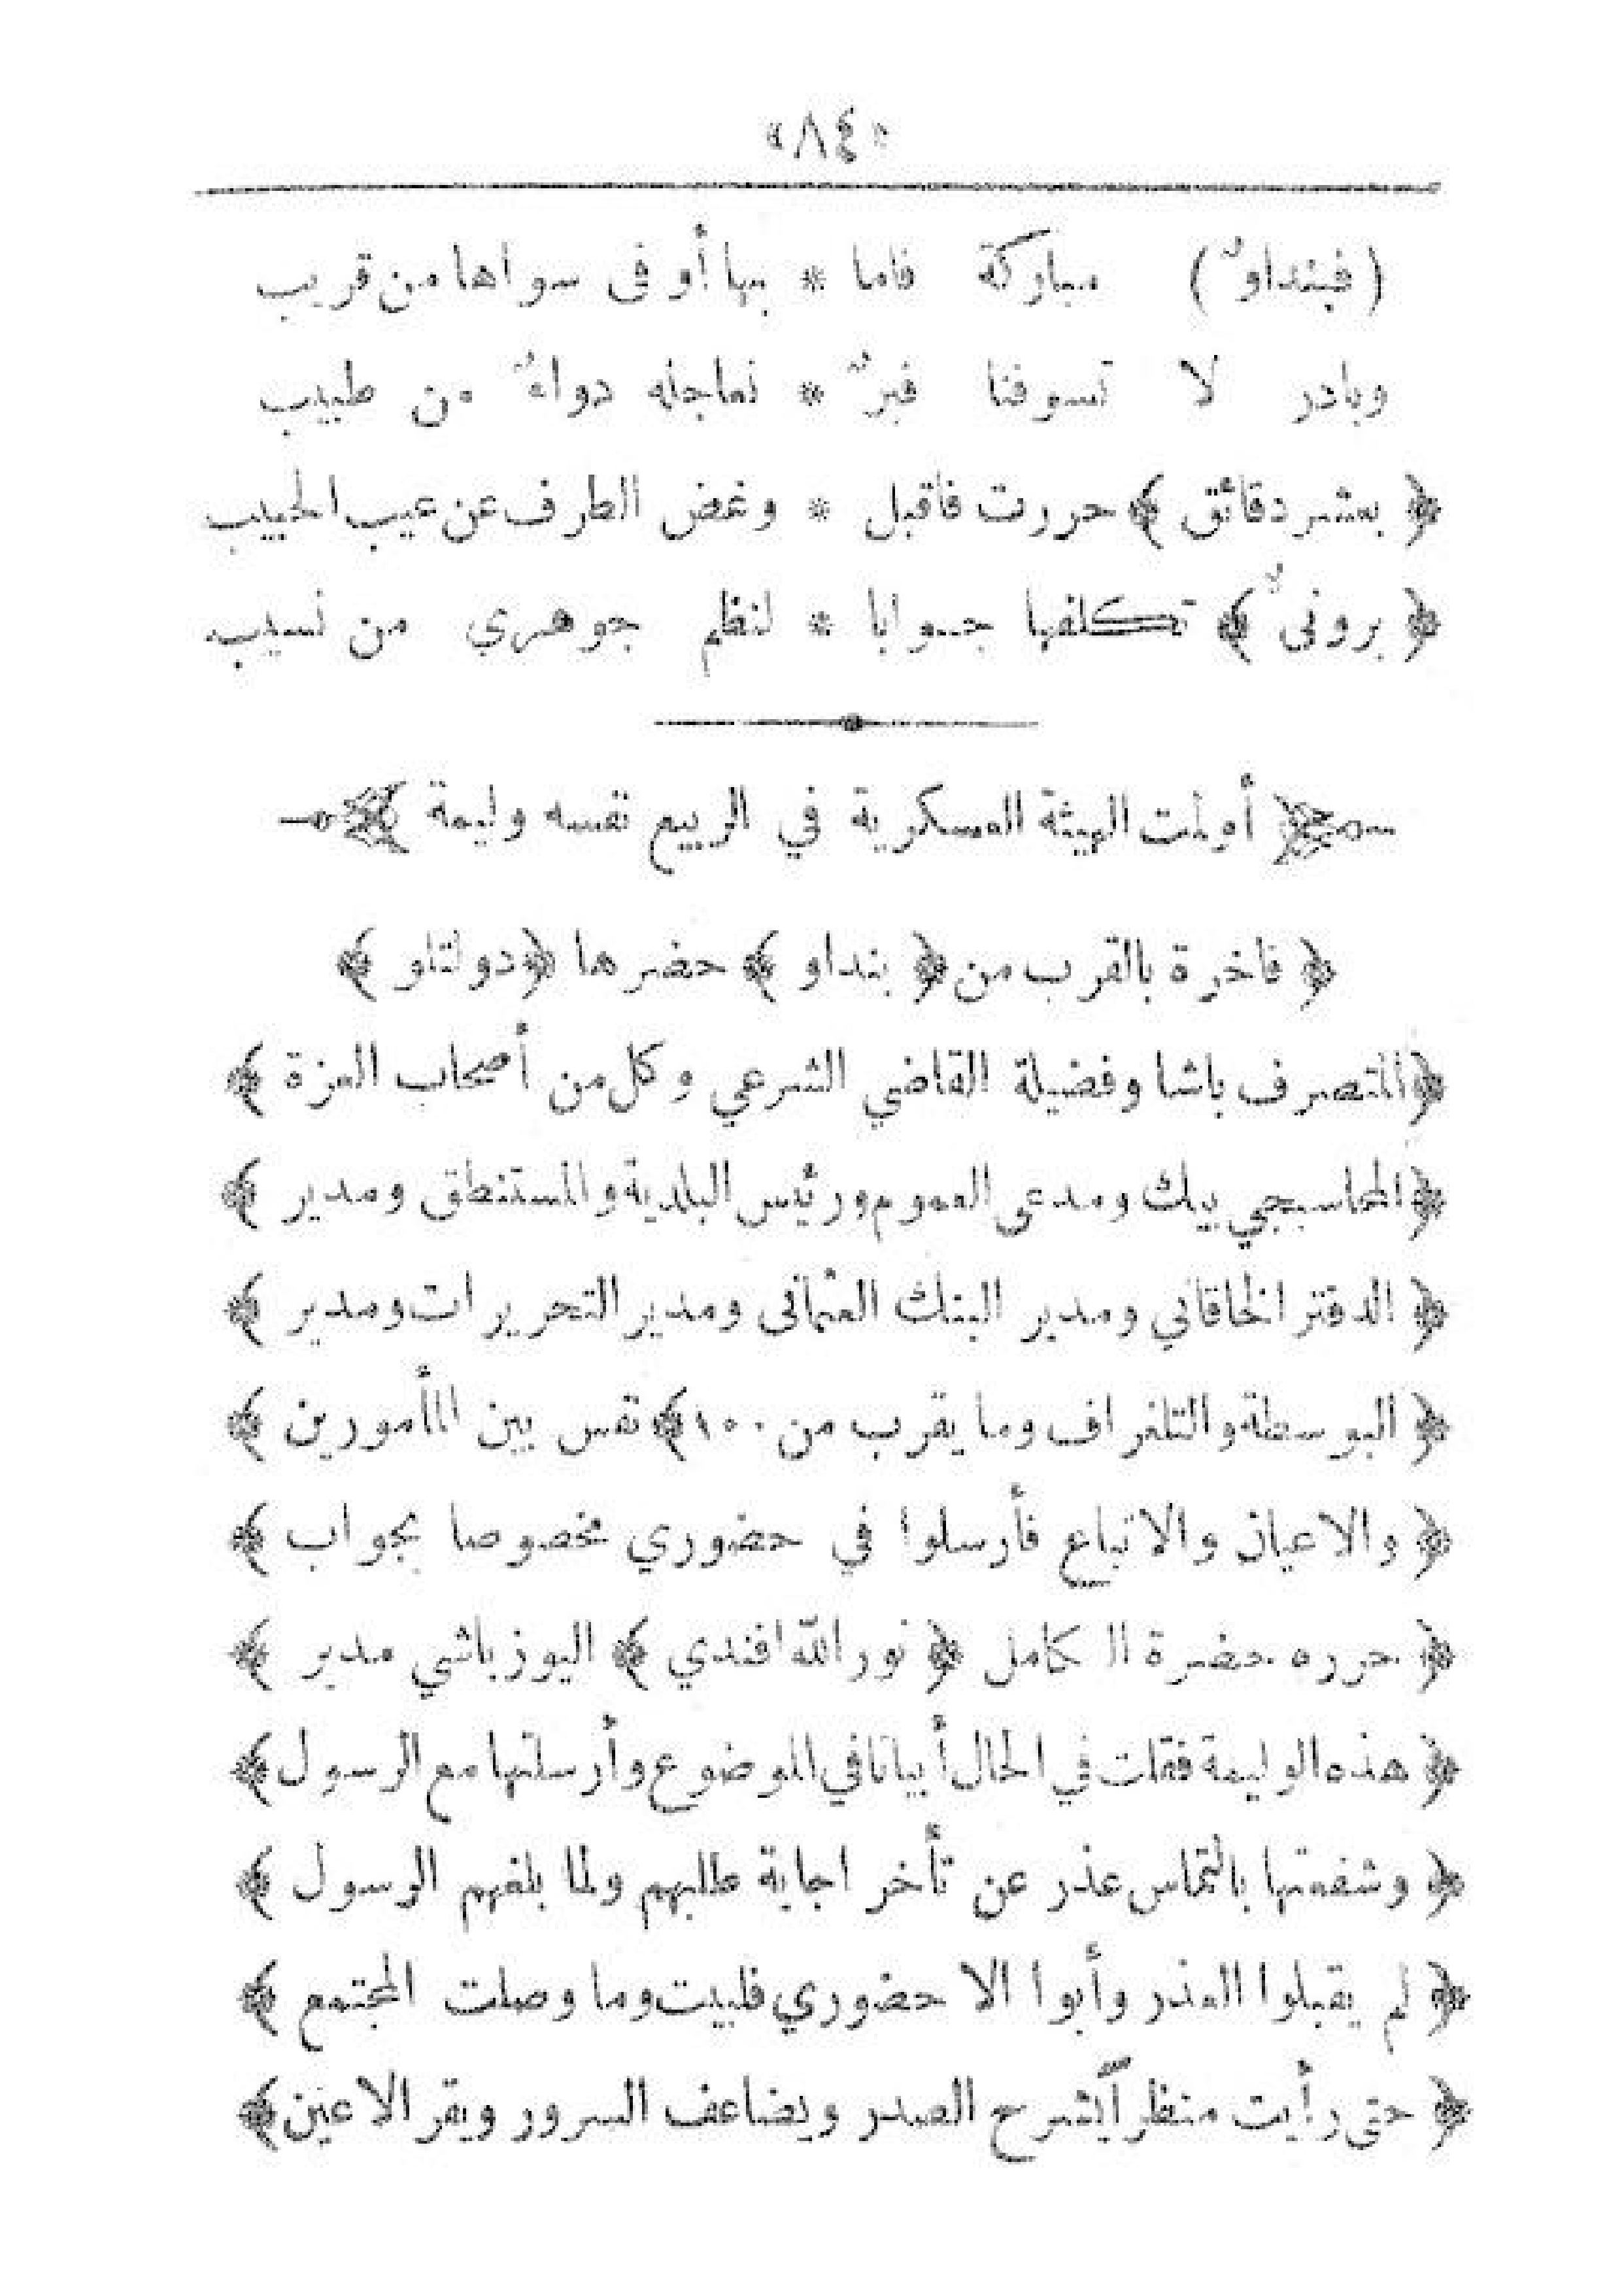 «٨٤»
(فبنداوٌ) مباركة فاما * بها أو في سواها من قريب
وبادر لا تسوفنا فبرٌ * نماجله دواءٌ من طبيب
﴿ بعشر دقائق ﴾ حررت فاقبل * وغض الطرف عن عيب الحبيب
﴿ برونىٌ ﴾ تكلفها جوابا * لنظم جوهري من نسيب
﴿ أولمت الهيئة العسكرية في الربيع نفسه وليمة ﴾
﴿ فاخرة بالقرب من ﴿ بنداو ﴾ حضرها ﴿ دولتلو ﴾
﴿ المتصرف باشا وفضيلة القاضي الشرعي وكل من أصحاب العزة ﴾
﴿ المحاسبجي بيك ومدعى العموم ورئيس البلدية والمستنطق ومدير ﴾
﴿ الدفتر الخاقاني ومدير البنك العثمانى ومدير التحريرات ومدير ﴾
﴿ البوسطة والتلغراف وما يقرب من ١٠٠ ﴾ نفس بين المأمورين ﴾
﴿ والاعيان والاتباع فأرسلوا في حضوري مخصوصا بجواب ﴾
﴿ حرره حضرة الكامل ﴿ نور الله افندي ﴾ اليوزباشي مدير ﴾
﴿ هذه الوليمة فقلت في الحال أبياتا في الموضوع وأرسلتها مع الرسول ﴾
﴿ وشفعتها بالتماس عذر عن تأخر اجابة طلبهم ولما بلغهم الرسول ﴾
﴿ لم يقبلوا العذر وأبوا الا حضوري فلبيت وما وصلت المجتمع ﴾
﴿ حتى رأيت منظراً يشرح الصدر ويضاعف السرور ويقر الاعين ﴾